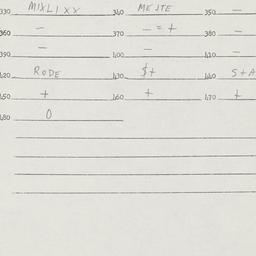 330 MIXLIXX 340 MEJTE 350 —
360 — 370 — = + 380 —
390 — 400 — 410 —
420 RODE 430 $+ 440 S+A
450 + 460 + 470 +
480 0